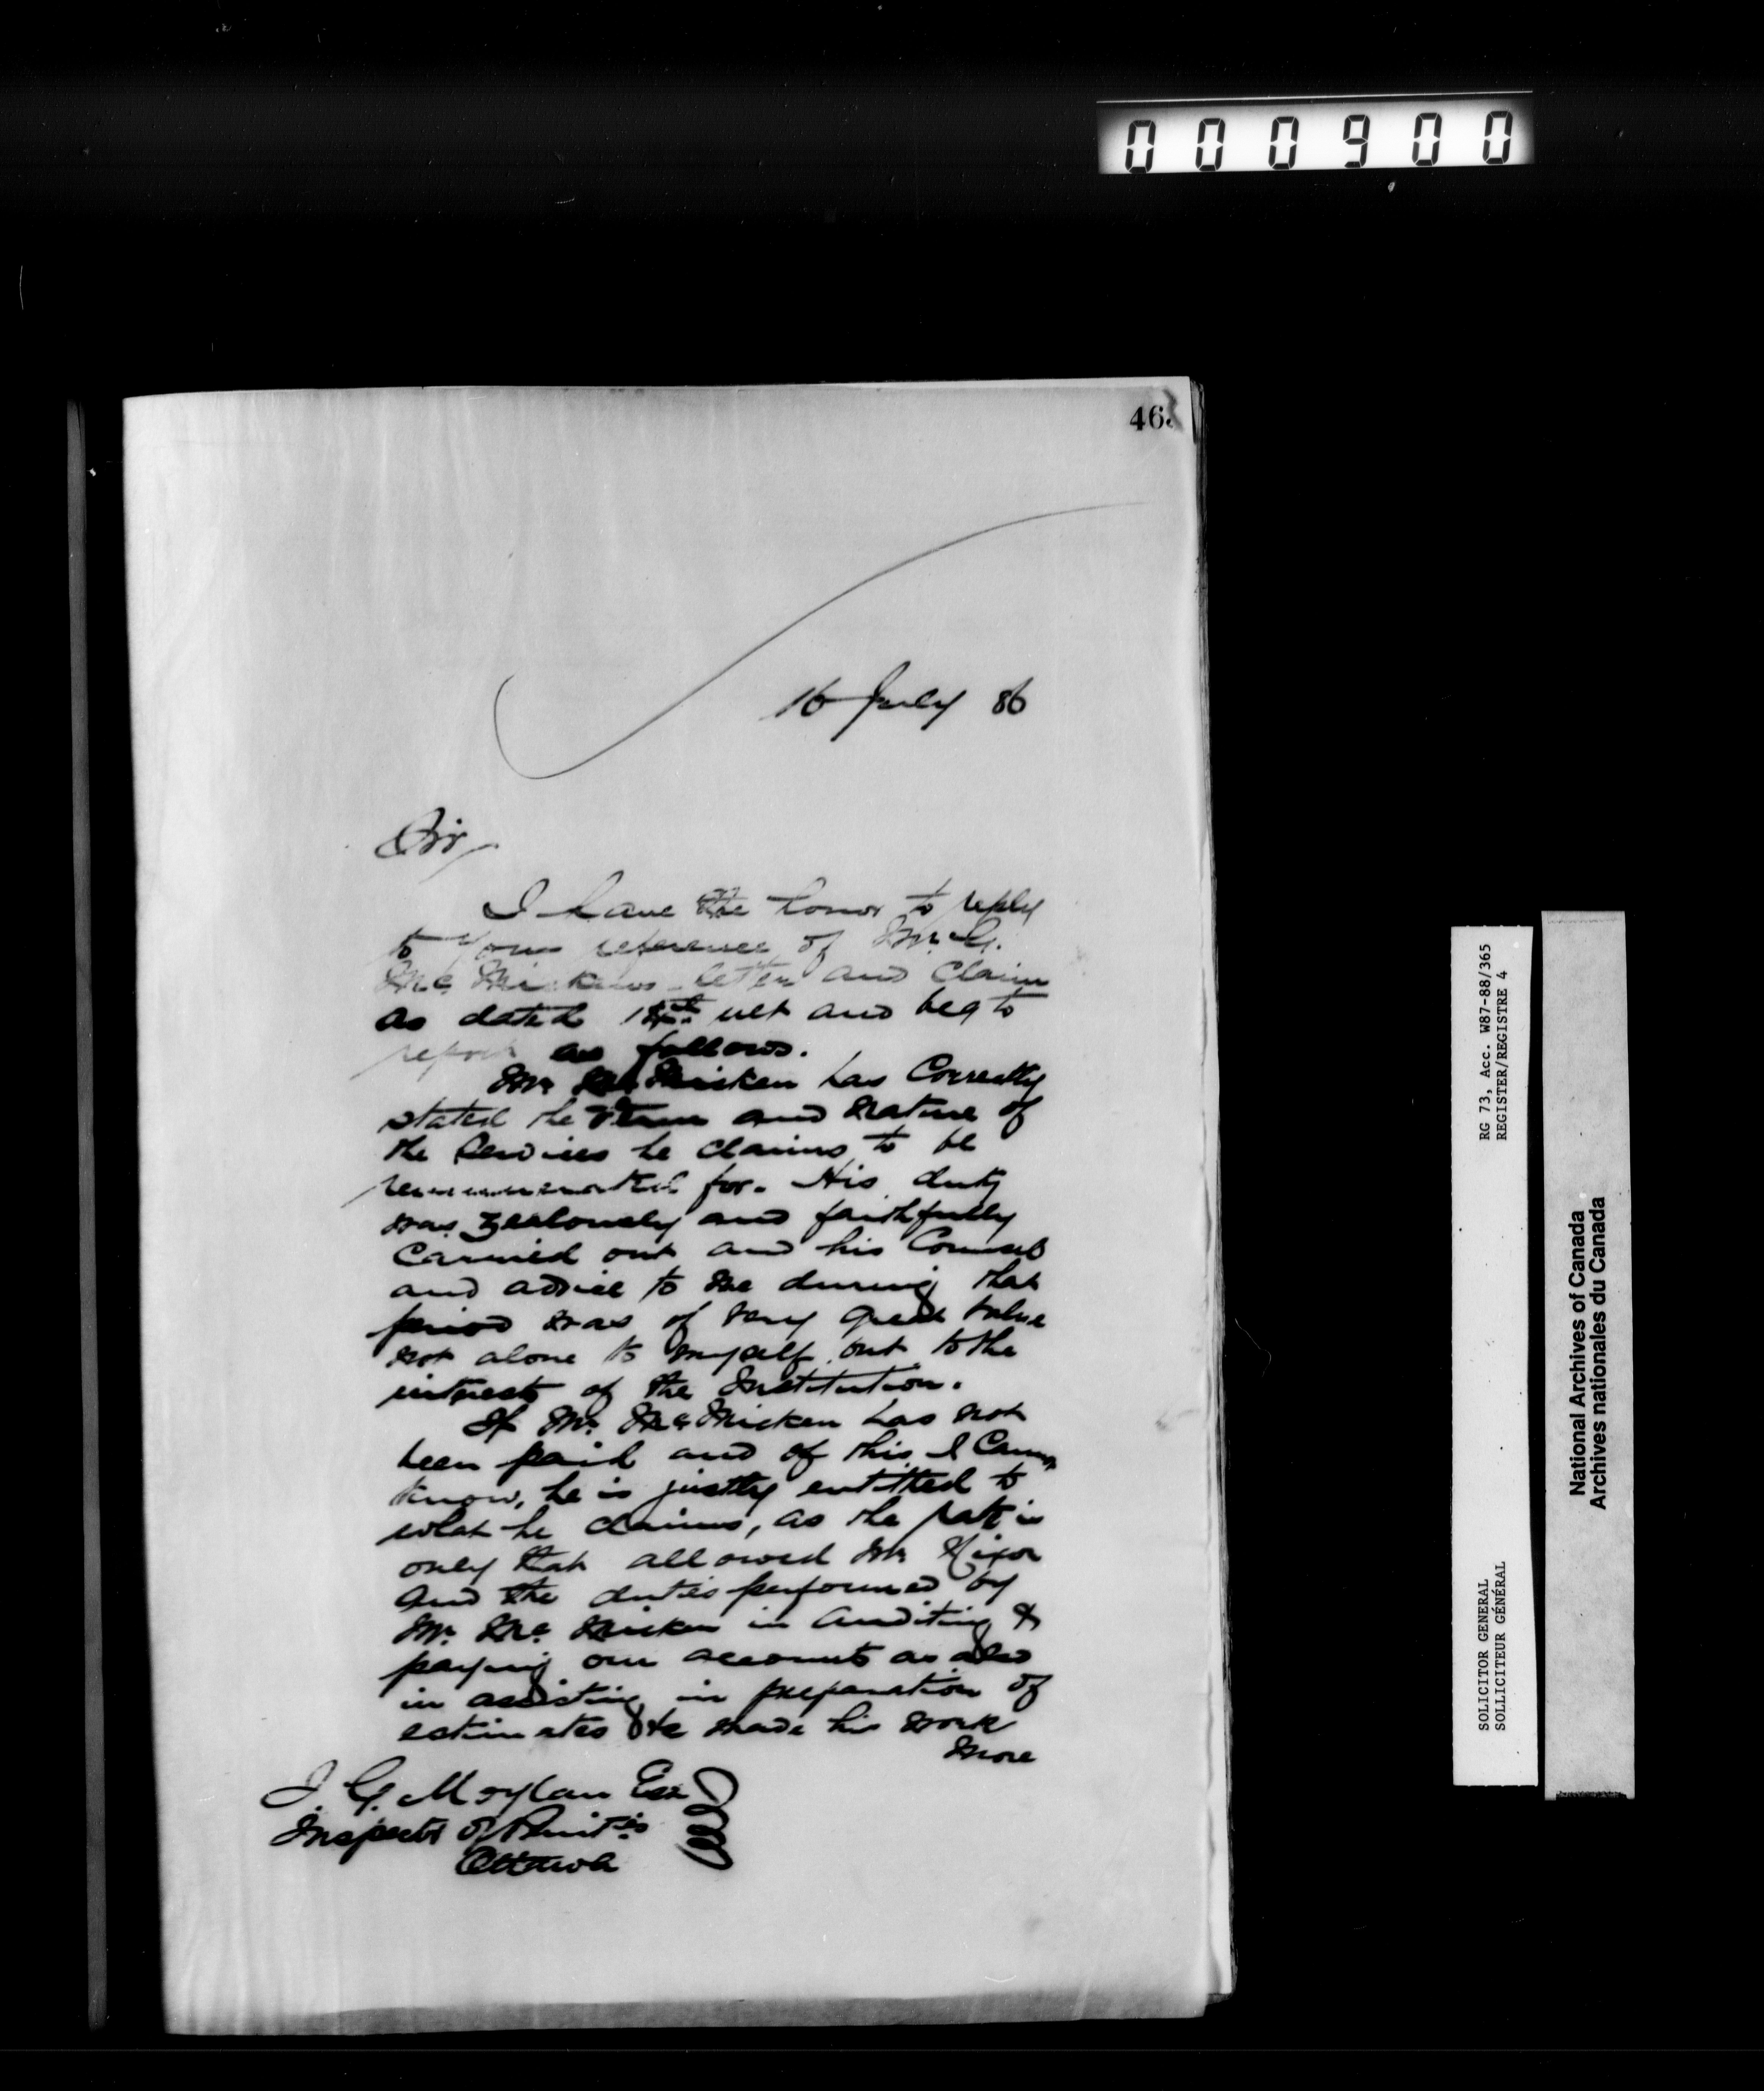 000900
463
16 July 86
Sir
I have the honor to reply
to your reference of Mr. G.
McMickens letter and Claim
as dated 14th ult and beg to
report as follows.
Mr McMicken has Correctly
stated the term and nature of
the Services he claims to be
remunerated for. His duty
was zealously and faithfully
Carried out and his Counsel
and advice to me during that
period was of very great value
not alone to myself but to the
interests of the Institution.
If Mr. McMicken has not
been paid and of this I Cannot
know, he is justly entitled to
what he claims, as the rate is
only that allowed Mr Nixon
and the duties performed by
Mr. McMicken in Auditing &
paying our accounts as also
in assisting in preparation of
estimates &c made his work
more
J. G. Moylan Esq
Inspector of Penit'ies
Ottawa
RG 73, Acc. W87-88/365
REGISTER/REGISTRE 4
SOLICITOR GENERAL
SOLLICITEUR GÉNÉRAL
National Archives of Canada
Archives nationales du Canada